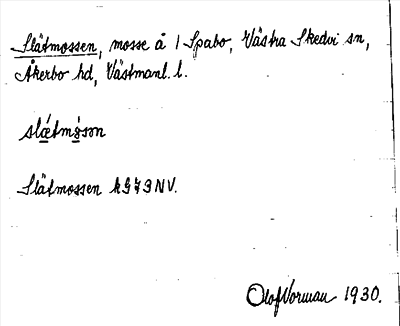 Slätmossen, mosse å 1 Spabo, Västra Skedvi sn,
Åkerbo hd, Västmanl. l.
slǽtmòson
Slätmossen k973NV.
Olof Norman 1930.